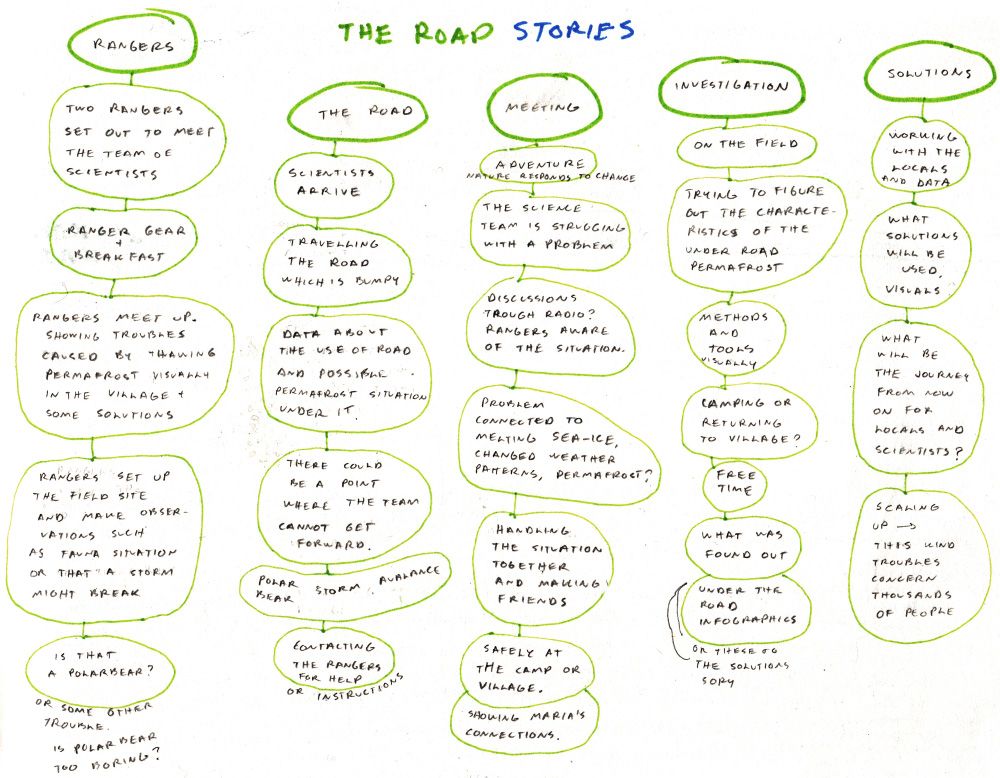 THE ROAD STORIES
RANGERS
TWO RANGERS
SET OUT TO MEET
THE TEAM OF
SCIENTISTS
RANGER GEAR
+
BREAKFAST
RANGERS MEET UP.
SHOWING TROUBLES
CAUSED BY THAWING
PERMAFROST VISUALLY
IN THE VILLAGE +
SOME SOLUTIONS
RANGERS SET UP
THE FIELD SITE
AND MAKE OBSER-
VATIONS SUCH
AS FAUNA SITUATION
OR THAT A STORM
MIGHT BREAK
IS THAT
A POLARBEAR?
OR SOME OTHER
TROUBLE.
IS POLARBEAR
TOO BORING?
THE ROAD
SCIENTISTS
ARRIVE
TRAVELLING
THE ROAD
WHICH IS BUMPY
DATA ABOUT
THE USE OF ROAD
AND POSSIBLE
PERMAFROST SITUATION
UNDER IT.
THERE COULD
BE A POINT
WHERE THE TEAM
CANNOT GET
FORWARD.
POLAR STORM AVALANCE
BEAR
CONTACTING
THE RANGERS
FOR HELP
OR INSTRUCTIONS
MEETING
ADVENTURE
NATURE RESPONDS TO CHANGE
THE SCIENCE
TEAM IS STRUGGING
WITH A PROBLEM
DISCUSSIONS
TROUGH RADIO?
RANGERS AWARE
OF THE SITUATION.
PROBLEM
CONNECTED TO
MELTING SEA-ICE,
CHANGED WEATHER
PATERNS, PERMAFROST?
HANDLING
THE SITUATION
TOGETHER
AND MAKING
FRIENDS
SAFELY AT
THE CAMP OR
VILLAGE.
SHOWING MARIA'S
CONNECTIONS.
INVESTIGATION
ON THE FIELD
TRYING TO FIGURE
OUT THE CHARACTE-
RISTICS OF THE
UNDER ROAD
PERMAFROST
METHODS
AND
TOOLS
VISUALLY
CAMPING OR
RETURNING
TO VILLAGE?
FREE
TIME
WHAT WAS
FOUND OUT
UNDER THE
ROAD
INFOGRAPHICS
OR THESE TO
THE SOLUTIONS
SORY
SOLUTIONS
WORKING
WITH THE
LOCALS
AND DATA
WHAT
SOLUTIONS
WILL BE
USED,
VISUALS
WHAT
WILL BE
THE JOURNEY
FROM NOW
ON FOR
LOCALS AND
SCIENTISTS?
SCALING
UP →
THIS KIND
TROUBLES
CONCERN
THOUSANDS
OF PEOPLE